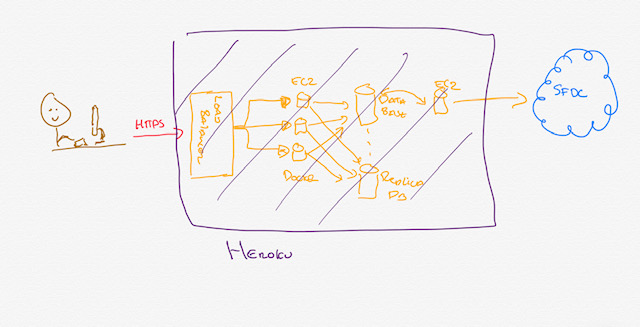 HTTPS
LOAD
Balancer
EC2
Docker
DATA
BASE
Replica
DB
EC2
SFDC
HEROKU